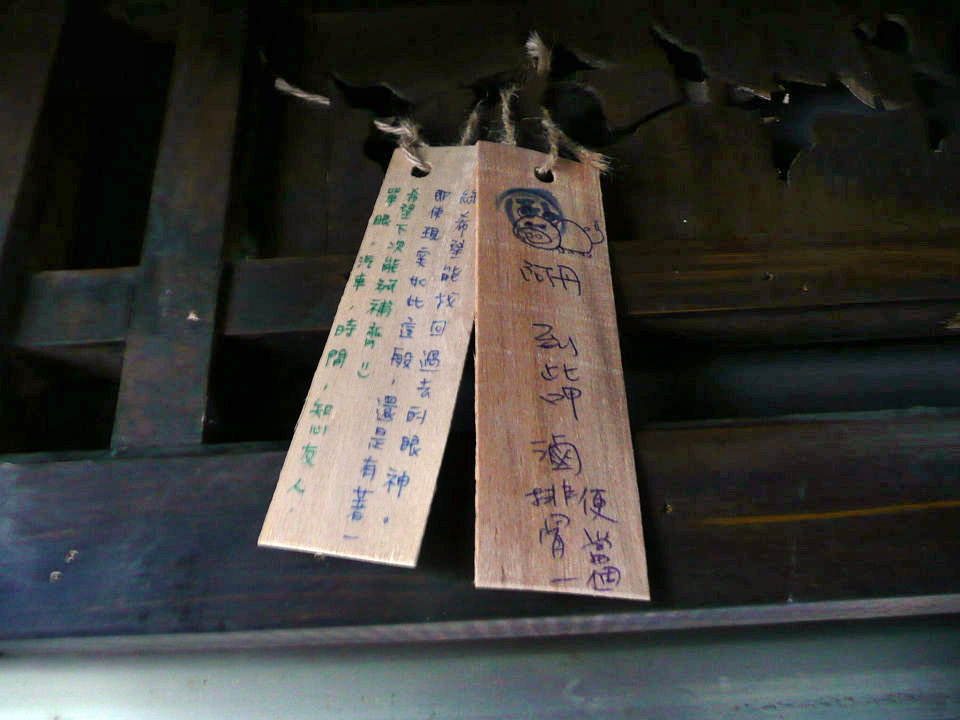 單眼，汽車，時間，知心友人．
希望下次能夠補齊 =)
即使現實如此這般，還是有著一
絲希望能找回過去的眼神。
阿丹
到此呷
滷排骨
便當
一個